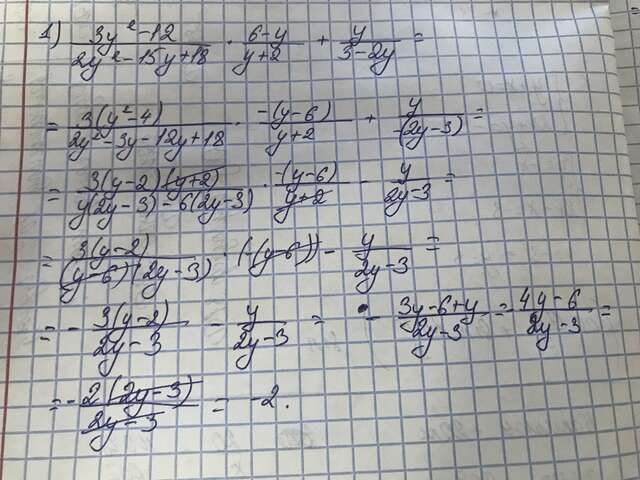 1) (3y²-12)/(2y²-15y+18) · (6-y)/(y+2) + y/(3-2y) =
= 3(y²-4)/(2y²-3y-12y+18) · -(y-6)/(y+2) + y/(-(2y-3)) =
= 3(y-2)(y+2)/(y(2y-3)-6(2y-3)) · -(y-6)/(y+2) - y/(2y-3) =
= 3(y-2)/((y-6)(2y-3)) · (-(y-6)) - y/(2y-3) =
= - 3(y-2)/(2y-3) - y/(2y-3) = - (3y-6+y)/(2y-3) = (4y-6)/(2y-3) =
= - 2(2y-3)/(2y-3) = -2.